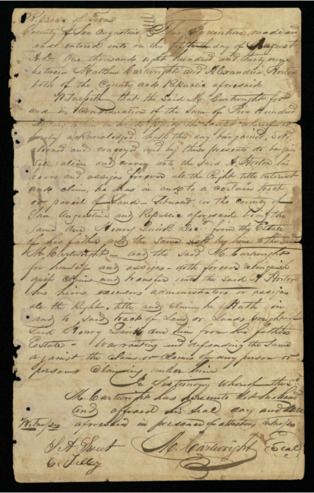 Republic of Texas
County of San Augustine } This Indenture made and
and entered into on this fifteenth day of August
A.D. One thousand eight hundred and thirty nine
between Matthew Cartwright and Alexander Horton
both of the County and Republic aforesaid
Witnesseth that the said M. Cartwright for
and in consideration of the sum of Five Hundred
acknowledged, hath this day bargained, sold,
and conveyed and by these presents do bargain
sell alien and convey unto the said A. Horton his
heirs and assigns forever all the Right title interest
and claim he has in and to a certain tract
or parcel of Land situated in the County of
San Augustine and Republic aforesaid
same due Henry Quirk from the Estate
of his father and the same sold by him to the said
M. Cartwright and the said M. Cartwright
for himself and assigns doth forever relinquish
quit claim and transfer unto the said A Horton
his heirs executors administrators or assigns
all the Right, title and claim he hath in
and to said tract of Land or Lands bought of
said Henry Quirk due him from his fathers
Estate - Warranting and defending the same
against the claim or claims of any person or
persons claiming under him
In Testimony whereof the
M. Cartwright has hereunto set his hand
and affixed his seal day and date
aforesaid in presence of attesting witnesses
Witnesses
M. Cartwright Seal